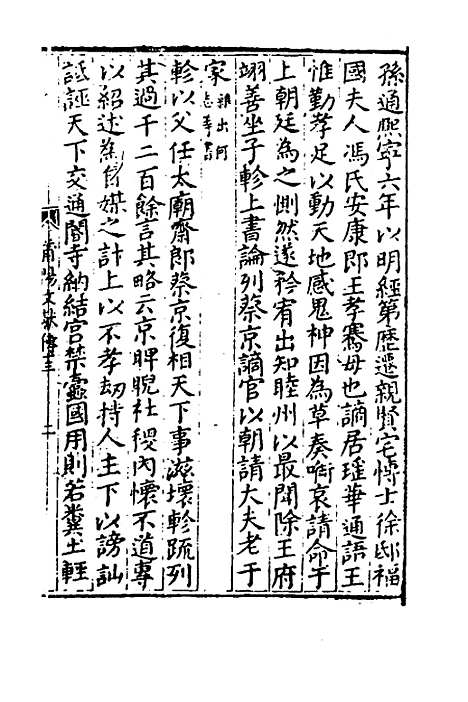 孫通熙寧六年以明經第歷遷親賢宅博士徐邸福
國夫人馮氏安康郎王孝騫母也謫居瑤華通語王
惟勤孝足以動天地感鬼神因為草奏銜哀請命于
上朝廷為之惻然遂矜宥出知睦州以最聞除王府
翊善坐子軫上書論列蔡京謫官以朝請大夫老于
家雜出何志等書
軫以父任太廟齋郎蔡京復相天下事滋壞軫疏列
其過千二百餘言其略云京睥睨社稷內懷不道專
以紹述為自媒之計上以不孝劫持人主下以謗訕
詆誣天下交通閽寺納結宮禁蠹國用則若糞土輕
莆陽文獻傳三 二